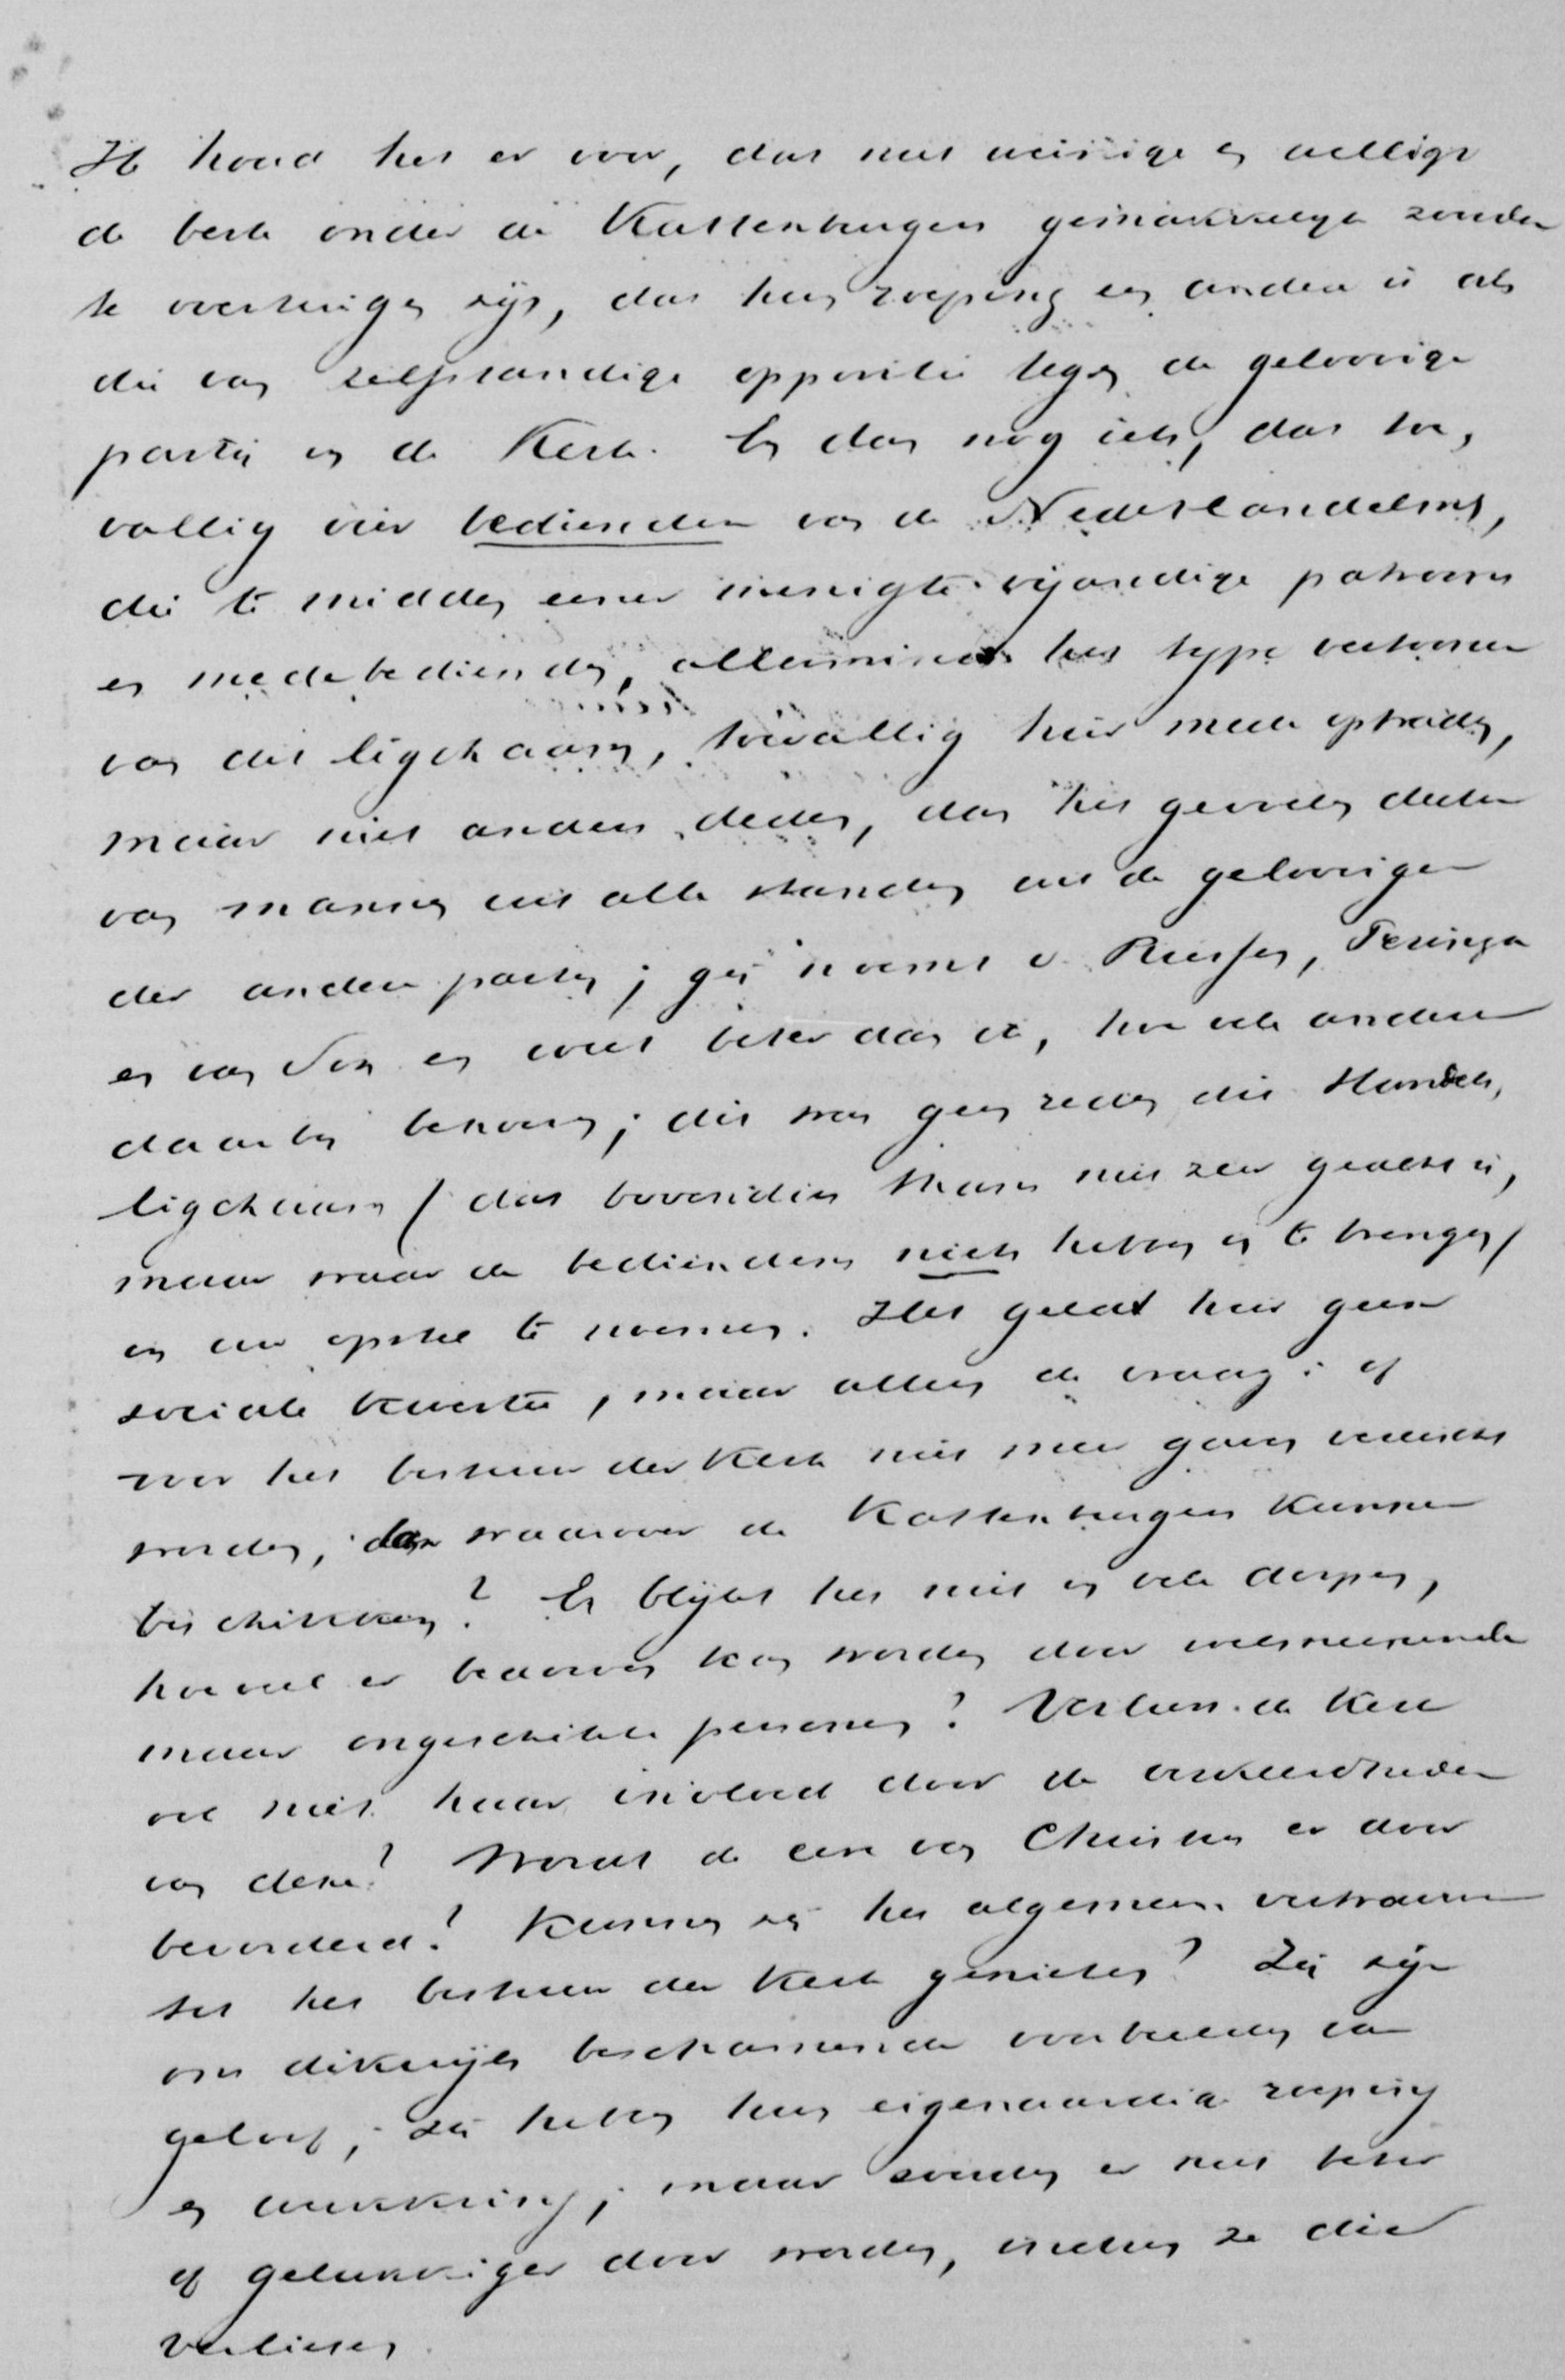 Ik houd het er voor, dat niet weinige en wellicht
de beste onder de Kattenburgers gemakkelijk zouden
te overtuigen zijn, dat hun roeping een andere is als
die van zelfstandige oppositie tegen de geloovige
partij in de Kerk. En dan nog iets, dat toe,
vallig vier bedienden van de Nederlandsche,
die te midden eener menigte vijandige patroons
en medebedienden, allerminst het type vertoonen
van dit ligchaam, toevallig hier mede optraden,
maar niet anders deden, dan het gevoelen deelen
van mannen uit alle standen uit de geloovigen
der andere partij; gij noemt v. Reesen, Teringa
en van Son en weet beter dan ik, hoe vele andere
daarbij behooren; dit was geen reden dit Handels,
ligchaam / dat bovendien thans niet zeer geacht is,
maar waar de bedienden niets hebben in te brengen /
in uw opstel te noemen. Het geldt hier geen
sociale kwestie, maar alleen de vraag: of
voor het bestuur der Kerk niet meer gaven vereischt
worden, dan waarover de Kattenburgers kunnen
beschikken? En blijkt het niet in vele dorpen,
hoeveel er bedorven kan worden door welmeenende
maar ongeschikte personen? Verliest de Kerk
ook niet haar invloed door de verkeerdheden
van deze? Wordt de eere van Christus er door
bevorderd? Kunnen zij het algemeen vertrouwen
tot het bestuur der Kerk genieten? Zij zijn
ons dikwijls beschamende voorbeelden van
geloof; zij hebben hun eigenaardige roeping
en werkkring; maar zouden er niet beter
of gelukkiger door worden, indien ze die
verliezen